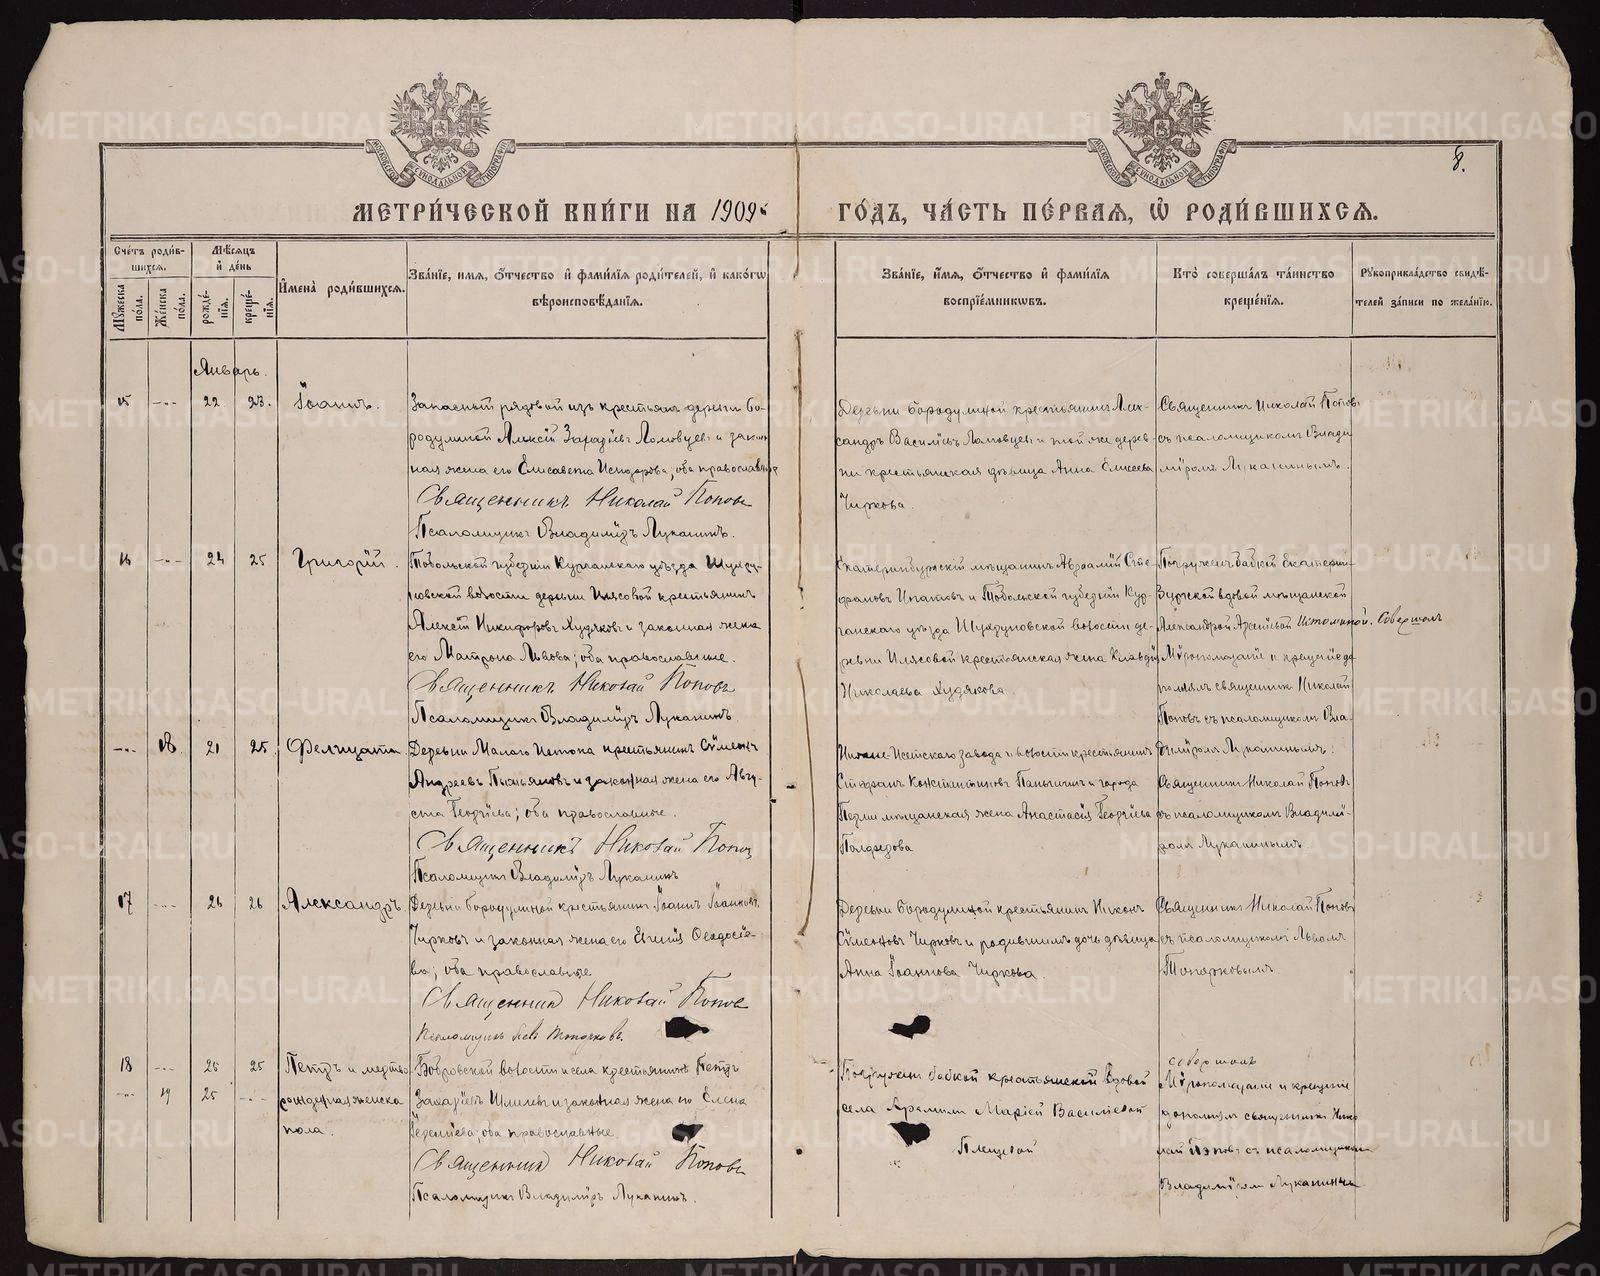 8.
МЕТРИ́ЧЕСКОЙ КНИ́ГИ НА 1909
ГО́ДЪ, ЧА́СТЬ ПЕ́РВАЯ, Ѡ҆ РОДИ́ВШИХСѦ.
Сче́тъ роди́в-
шихсѧ.
Мѣ́сѧцъ
и҆ де́нь
Мꙋ́жеска по́ла.
Же́нска по́ла.
рожде́-
нїѧ.
креще́-
нїѧ.
И҆мена̀ роди́вшихсѧ.
Зва́нїе, и҆мѧ, ѻ҆́тчество и҆ фами́лїѧ роди́телей, и҆ како́гѡ
вѣроисповѣ́данїѧ.
Зва́нїе, и҆́мѧ, ѻ҆́тчество и҆ фами́лїѧ
воспрїе́мникѡвъ.
Кто̀ соверша́лъ та́инство
креще́нїѧ.
Рꙋкоприкла́дство свидѣ́-
телей за́писи по жела́нїю.
Январь.
15 22 23. Іоаннъ.
Запасный рядовой изъ крестьянъ деревни Бо-
родулиной Алексій Ломовцевъ и закон
ная жена его Елисавета; оба православные
Священникъ Николай Поповъ
Псаломщикъ Владиміръ Луканинъ.
Деревни Бородулиной крестьянинъ Алек-
сандръ Василіевъ Ломовцевъ и той же дерев-
ни крестьянская дѣвица Анна Елисеева
Чиркова.
Священникъ Николай Поповъ
съ псаломщикомъ Влади
міромъ Луканинымъ.
16 24 25 Григорій.
Тобольской губерніи Курганскаго уѣзда
волости деревни Илясовой крестьянинъ
Алексій Никифоровъ Худяковъ и законная жена
его Матрона Львова; оба православные.
Священникъ Николай Поповъ
Псаломщикъ Владиміръ Луканинъ
Екатеринбургскій мѣщанинъ Авраамій Сте-
фановъ Игнатовъ и Тобольской губерніи Кур-
ганскаго уѣзда волости де-
ревни Илясовой крестьянская жена Клавдія
Николаева Худякова.
Погруженъ бабкой Екатерин-
бургской вдовой мѣщанской
Александрой Арсеніевой Истоминой. Совершалъ
Мѵропомазаніе и крещеніе до
полнялъ священникъ Николай
Поповъ съ псаломщикомъ Вла-
диміромъ Луканинымъ.
18 21 25. Фелицата
Деревни Малаго Истока крестьянинъ Сѵмеонъ
Андреевъ и законная жена его Авгу-
ста Георгіева; оба православные.
Священникъ Николай Поповъ
Псаломщикъ Владиміръ Луканинъ
Нижне-Исетскаго завода и волости крестьянинъ
Стефанъ Константиновъ и города
Перми мѣщанская жена Анастасія Георгіева
Священникъ Николай Поповъ
съ псаломщикомъ Владимі-
ромъ Луканинымъ.
17 26 26 Александръ
Деревни Бородулиной крестьянинъ Іоаннъ Іоанновъ
Чирковъ и законная жена его Евгенія Ѳеодосіе-
ва; оба православные
Священникъ Николай Поповъ
Псаломщикъ Левъ Топорковъ.
Деревни Бородулиной крестьянинъ Никонъ
Сѵмеоновъ Чирковъ и родившимъ дочь дѣвица
Анна Іоаннова Чиркова.
Священникъ Николай Поповъ
съ псаломщикомъ Львомъ
Топорковымъ.
18 25 25 Петръ и мертво
19 25 рожденная женска
пола.
Бобровской волости и села крестьянинъ Петръ
Захаріевъ и законная жена его Елена
оба православные
Священникъ Николай Поповъ
Псаломщикъ Владиміръ Луканинъ.
Погруженъ бабкой крестьянской вдовой
села Арамили Маріей Василіевой
совершалъ
Мѵропомазаніе и крещеніе
дополнялъ священникъ Нико
лай Поповъ съ псаломщикомъ
Владиміромъ Луканинымъ